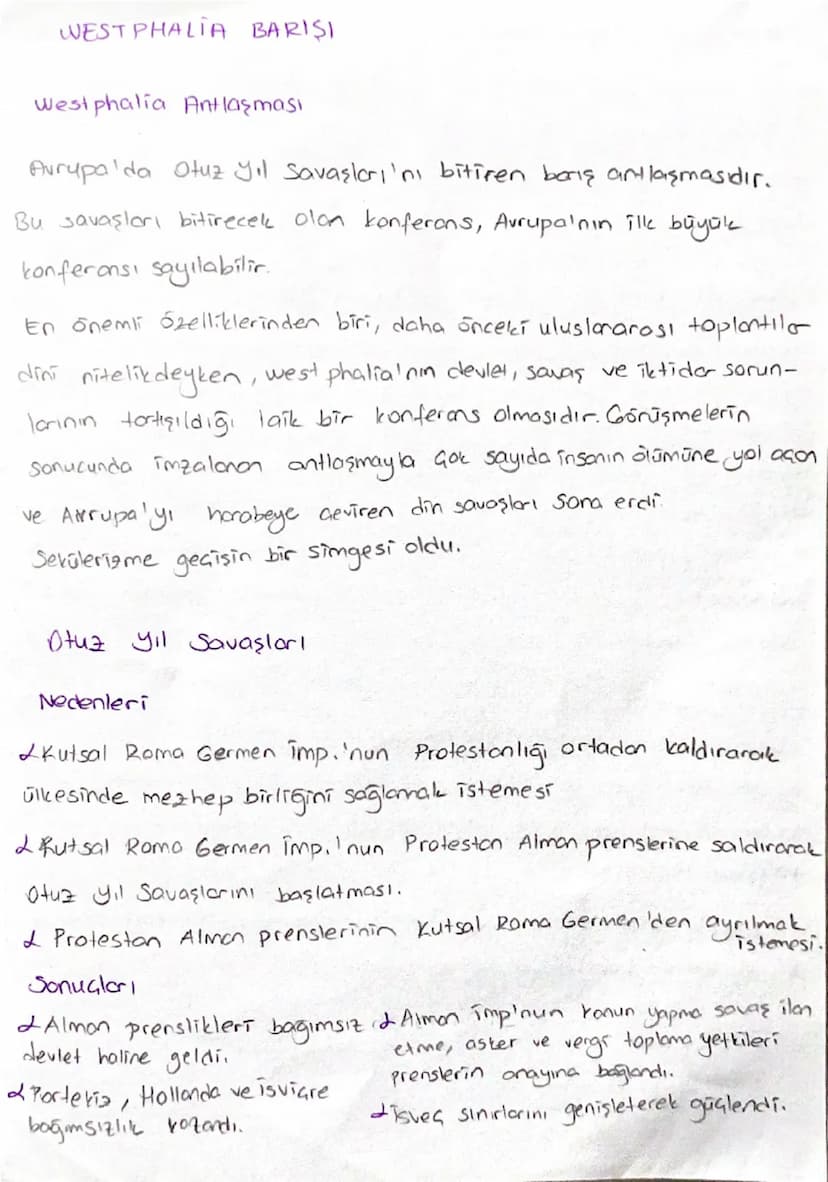 WESTPHALİA BARIŞI
Westphalia Antlaşması
Avrupa'da Otuz Yıl Savaşları'nı bitiren barış antlaşmasıdır.
Bu savaşları bitirecek olan konferans, Avrupa'nın ilk büyük
konferansı sayılabilir.
En önemli özelliklerinden biri, daha önceki uluslararası toplantılar
dini nitelikdeyken, westphalia'nın devlet, savaş ve iktidar sorun-
larının tartışıldığı laik bir konferans olmasıdır. Görüşmelerin
sonucunda imzalanan antlaşmayla çok sayıda insanın ölümüne yol açan
ve Avrupa'yı harabeye çeviren din savaşları sona erdi.
Sekülerizme geçişin bir simgesi oldu.
Otuz Yıl Savaşları
Nedenleri
Kutsal Roma Germen İmp.'nun Protestanlığı ortadan kaldırarak
ülkesinde mezhep birliğini sağlamak istemesi
Kutsal Roma Germen İmp.'nun Protestan Alman prenslerine saldırarak
Otuz Yıl Savaşlarını başlatması.
Protestan Alman prenslerinin Kutsal Roma Germen'den ayrılmak
istemesi.
Sonuçları
Alman prenslikleri bağımsız
devlet haline geldi.
Portekiz, Hollanda ve İsviçre
bağımsızlık kazandı.
Alman İmp'nun kanun yapma savaş ilan
etme, asker ve vergi toplama yetkileri
prenslerin onayına bağlandı.
İsveç sınırlarını genişleterek güçlendi.